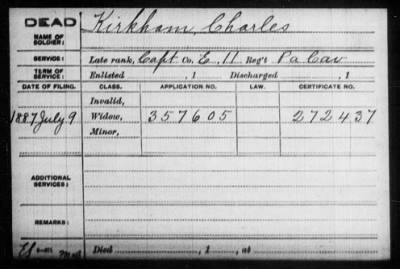 DEAD
NAME OF SOLDIER: Kirkham, Charles
SERVICE: Late rank, Capt Co. E. 11 Reg't Pa Cav
TERM OF SERVICE: Enlisted , 1 Discharged , 1
DATE OF FILING. CLASS. APPLICATION NO. LAW. CERTIFICATE NO.
Invalid,
1887 July 9 Widow, 357605 272437
Minor,
ADDITIONAL SERVICES:
REMARKS:
Died , 1 , at